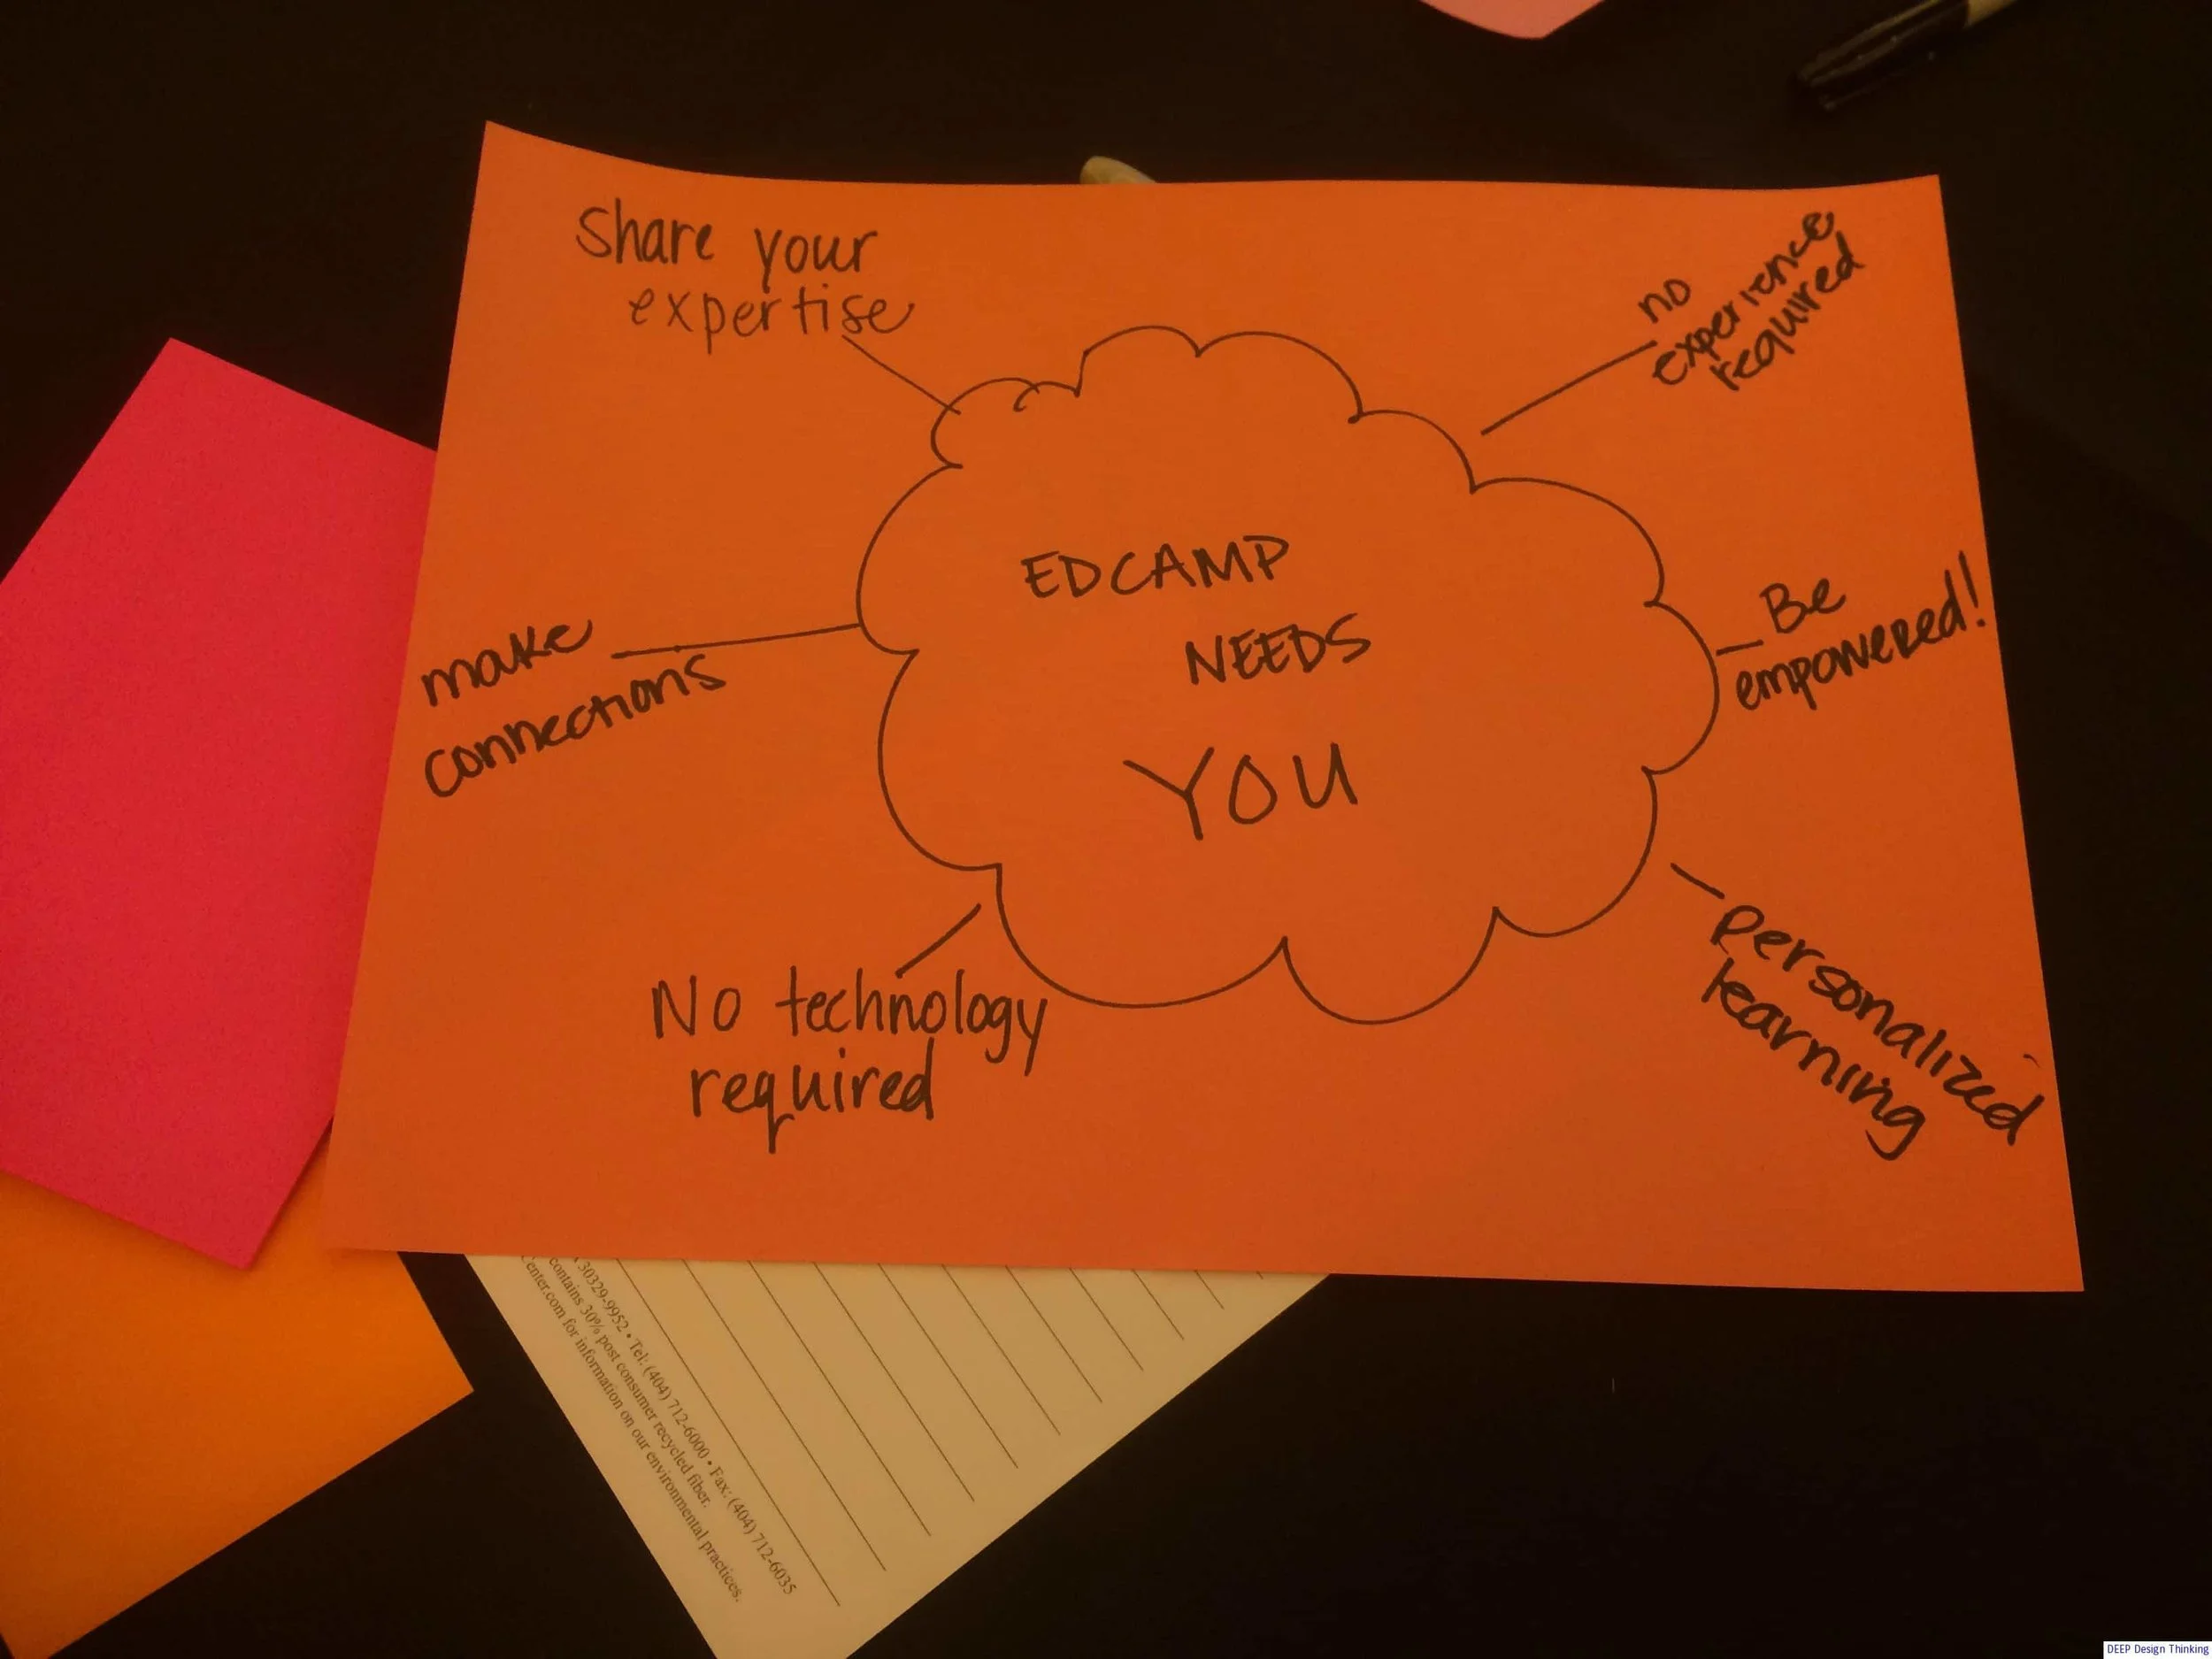 Share your
expertise
no
experience
required
EDCAMP
NEEDS
YOU
make
connections
Be
empowered!
No technology
required
personalized
learning
30329-9952 • Tel: (404) 712-6000 • Fax: (404) 712-6035
contains 30% post consumer recycled fiber.
enter.com for information on our environmental practices.
DEEP Design Thinking